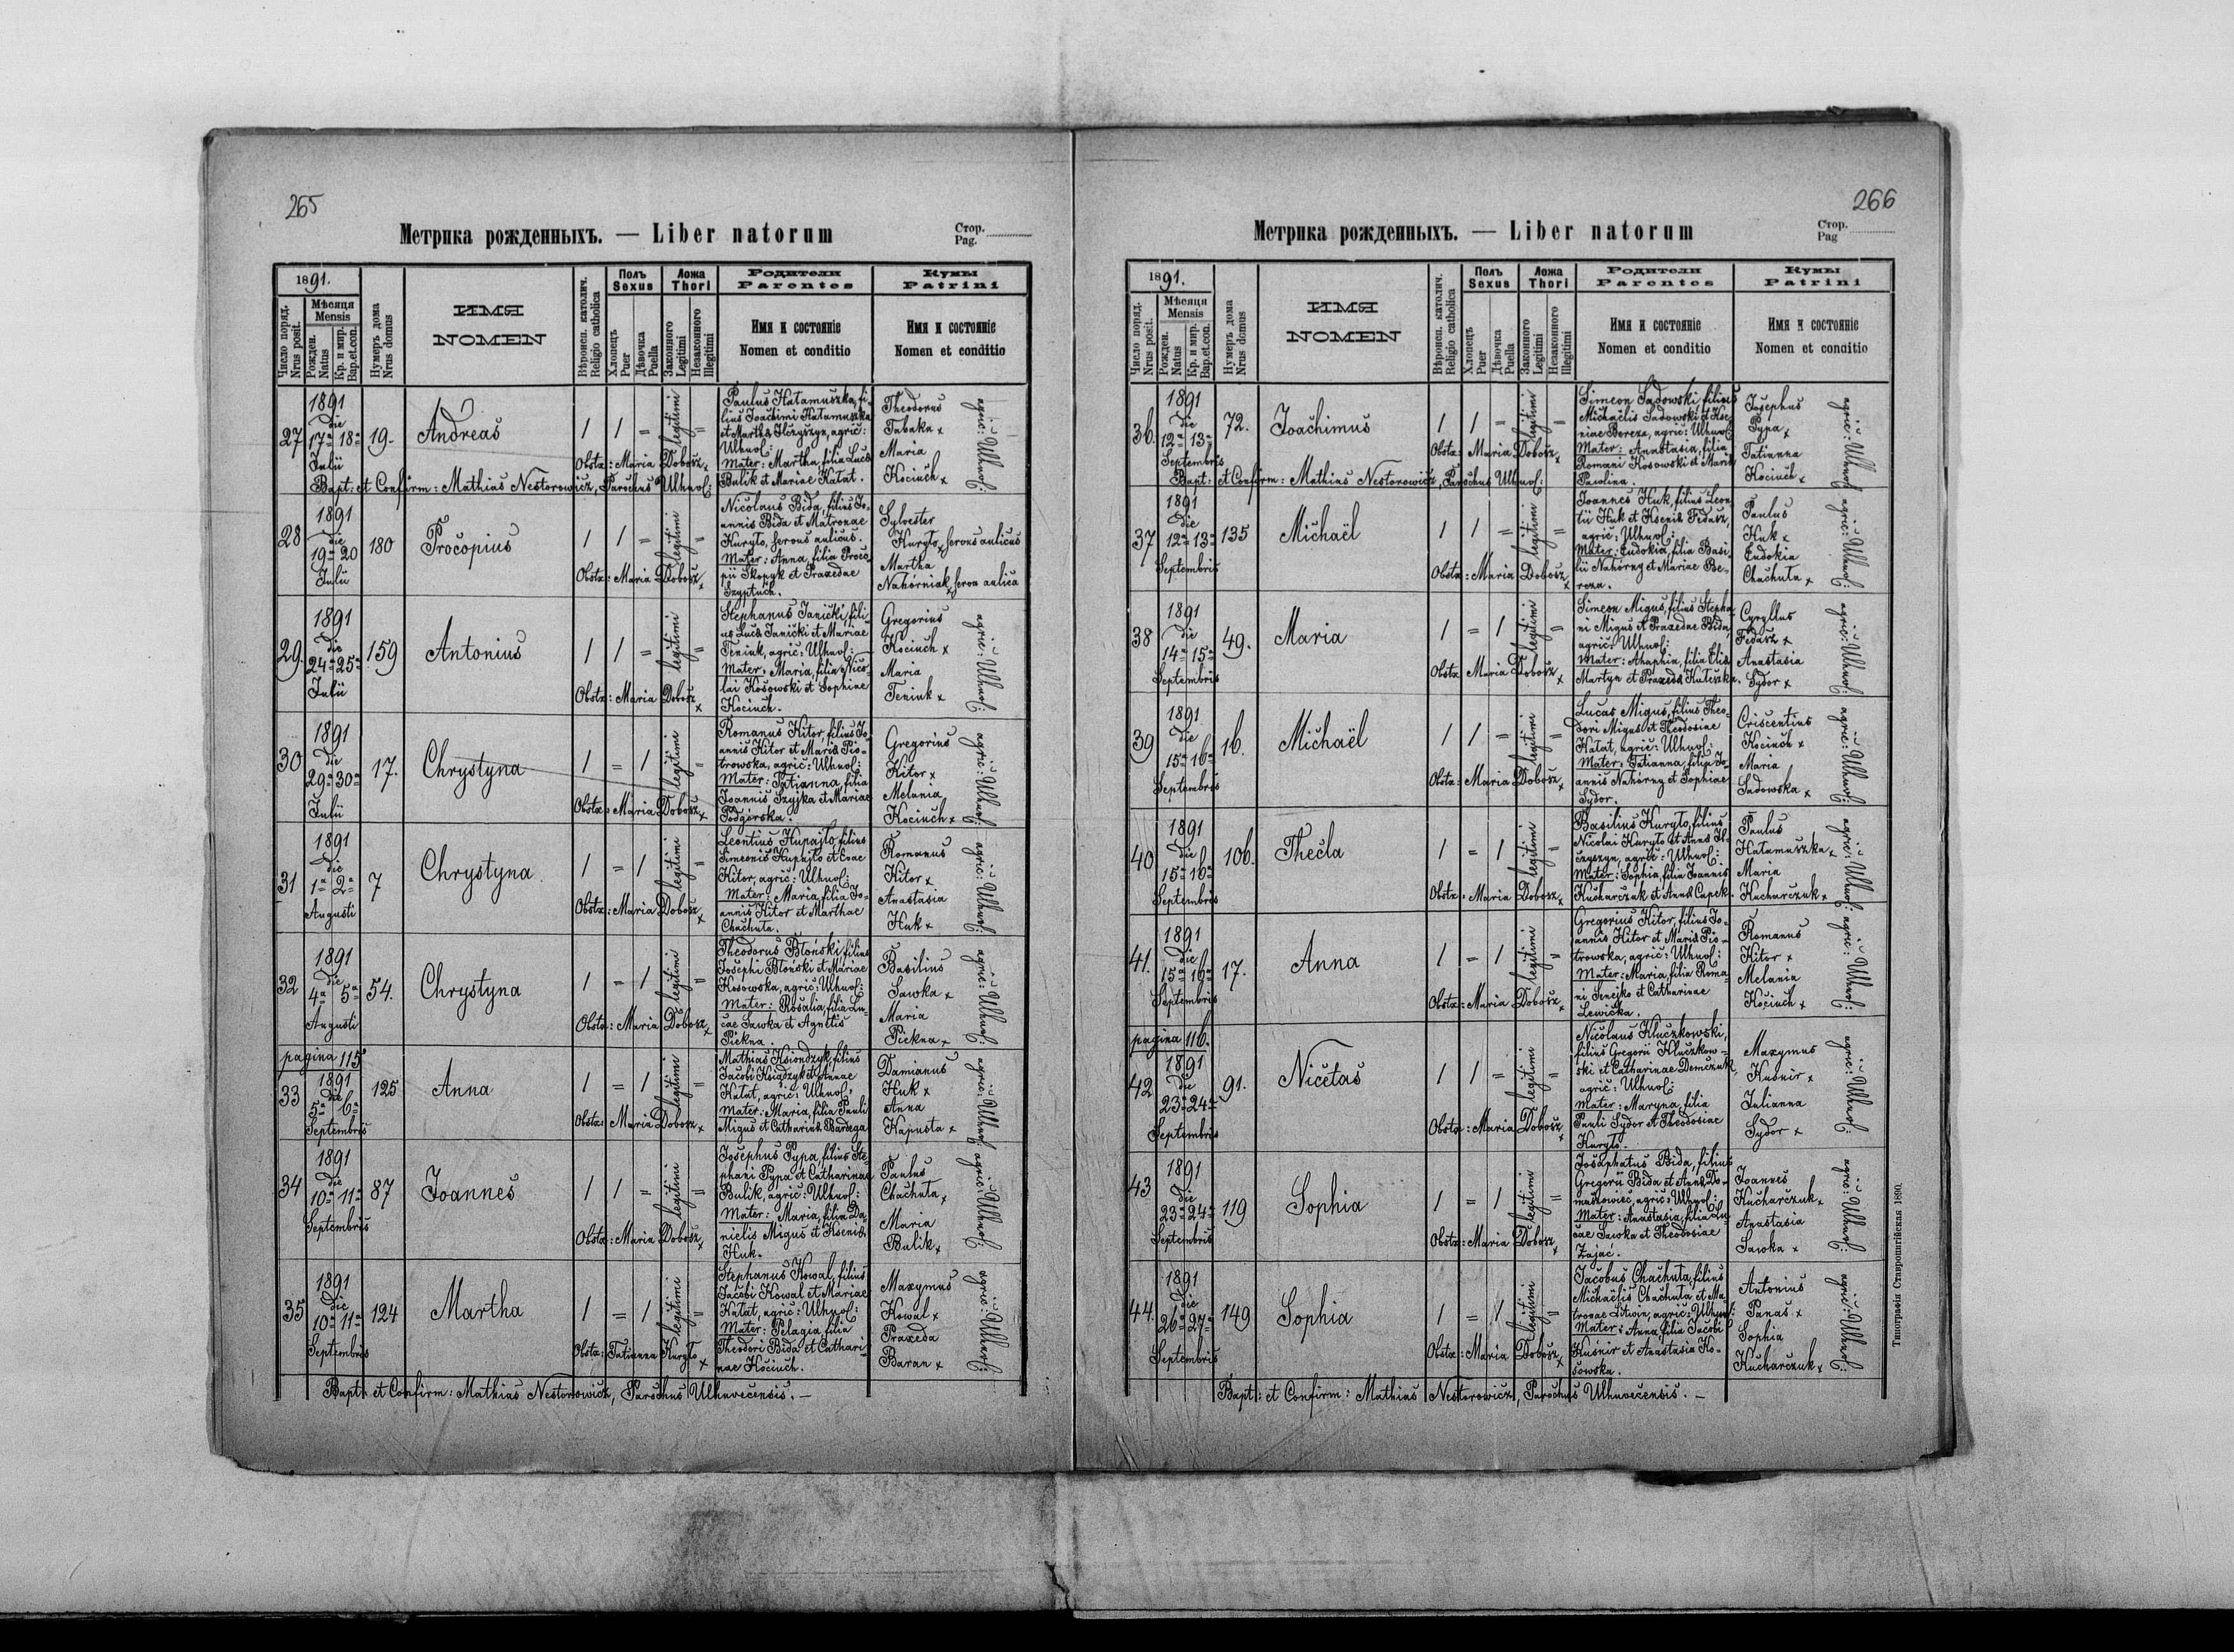 265
Метрика рожденныхъ. — Liber natorum
Стор.
Pag.
1891.
Число поряд.
Nrus posit.
Мѣсяця
Mensis
Рожден.
Natus
Кр. и мир.
Bap.et.con.
Нумеръ дома
Nrus domus
ИМЯ
NOMEN
Вѣронсп. католич.
Religio catholica
Полъ
Sexus
Хлопецъ
Puer
Дѣвочка
Puella
Ложа
Thori
Законного
Legitimi
Незаконного
Illegitimi
Родители
Parentes
Имя и состояніе
Nomen et conditio
Кумы
Patrini
Имя и состояніе
Nomen et conditio
27
1891
die
17a 18a
Julii
19.
Andreas
1 1 = legitimi =
Obstx: Maria Dobosz x
Paulus Hatamuszka, fi-
lius Joachimi Hatamuszka
et Martha Ilczyszyn, agric:
Uhnov:
Mater: Martha, filia Lucă
Bulik et Mariae Katat.
Theodorus
Tabaka x
Maria
Kociuch x
agric: Ulhuv:
Bapt: et Confirm: Mathias Nestorowicz, Parochus Ulhuv:
28
1891
die
19a 20
Julii
180
Procopius
1 1 = legitimi =
Obstx: Maria Dobosz x
Nicolaus Bida, filius Jo-
annis Bida et Matronae
Kuryto, servus aulicus.
Mater: Anna, filia Proco-
pii Skopyk et Praxedae
Szyptuch.
Sylvester
Kuryto x servus aulicus
Martha
Nahórniak x serva aulica
29.
1891
die
24a 25a
Julii
159
Antonius
1 1 = legitimi =
Obstx: Maria Dobosz x
Stephanus Janicki, fili-
us Lucă Janicki et Mariae
Teniuk, agric: Ulhuv:
Mater: Maria, filia Nico-
lai Kosowski et Sophiae
Kociuch.
Gregorius
Kociuch x
Maria
Teniuk x
agric: Ulhuv:
30
1891
die
29a 30a
Julii
17.
Chrystyna
1 = 1 legitimi =
Obstx: Maria Dobosz x
Romanus Kitor, filius Jo-
annis Kitor et Maria Pio-
trowska, agric: Ulhuv:
Mater: Tatianna, filia
Joannis Szyjka et Mariae
Podgórska.
Gregorius
Kitor x
Melania
Kociuch x
agric: Ulhuv:
31
1891
die
1a 2a
Augusti
7
Chrystyna
1 = 1 legitimi =
Obstx: Maria Dobosz x
Leontius Hupajto, filius
Simeonis Hupajto et Evae
Kitor, agric: Ulhuv:
Mater: Maria, filia Jo-
annis Kitor et Marthae
Chachuta.
Romanus
Kitor x
Anastasia
Huk x
agric: Ulhuv:
32
1891
die
4a 5a
Augusti
54.
Chrystyna
1 = 1 legitimi =
Obstx: Maria Dobosz x
Theodorus Btoński, filius
Josephi Btoński et Mariae
Kosowska, agric: Ulhuv:
Mater: Rosalia, filia Lu-
cae Sawka et Agnetis
Piekna.
Basilius
Sawka x
Maria
Piekna x
agric: Ulhuv:
pagina 115
33
1891
die
5a 6a
Septembris
125
Anna
1 = 1 legitimi =
Obstx: Maria Dobosz x
Mathias Ksiondzyk, filius
Jacobi Ksiądzyk et Annae
Katat, agric: Ulhuv:
Mater: Maria, filia Pauli
Migus et Catharină Bardega
Damianus
Huk x
Anna
Kapusta x
agric: Ulhuv:
34
1891
die
10a 11a
Septembris
87
Joannes
1 1 = legitimi =
Obstx: Maria Dobosz x
Josephus Pypa, filius Ste-
phani Pypa et Catharinae
Bulik, agric: Ulhuv:
Mater: Maria, filia Da-
nielis Migus et Ksenia
Huk.
Paulus
Chachuta x
Maria
Bulik x
agric: Ulhuv:
35
1891
die
10a 11a
Septembris
124
Martha
1 = 1 legitimi =
Obstx: Tatianna Kuryto x
Stephanus Kowal, filius
Jacobi Kowal et Mariae
Katat, agric: Ulhuv:
Mater: Pelagia, filia
Theodori Bida et Cathari-
nae Kociuch.
Maxymus
Kowal x
Praxeda
Baran x
agric: Ulhuv:
Bapt: et Confirm: Mathias Nestorowicz, Parochus Ulhuvecensis. —
266
Метрика рожденныхъ. — Liber natorum
Стор.
Pag
1891.
Число поряд.
Nrus posit.
Мѣсяця
Mensis
Рожден.
Natus
Кр. и мир.
Bap.et.con.
Нумеръ дома
Nrus domus
ИМЯ
NOMEN
Вѣронсп. католич.
Religio catholica
Полъ
Sexus
Хлопецъ
Puer
Дѣвочка
Puella
Ложа
Thori
Законного
Legitimi
Незаконного
Illegitimi
Родители
Parentes
Имя и состояніе
Nomen et conditio
Кумы
Patrini
Имя и состояніе
Nomen et conditio
36.
1891
die
12a 13a
Septembris
72.
Joachimus
1 1 = legitimi =
Obstx: Maria Dobosz x
Simeon Sadowski filius
Michaëlis Sadowski et Kse-
niae Bereza, agric: Ulhuv:
Mater: Anastasia, filia
Romani Kosowski et Maria
Pawlina.
Josephus
Pypa x
Tatianna
Kociuch x
agric: Ulhuv:
Bapt: et Confirm: Mathias Nestorowicz, Parochus Ulhuv:
37
1891
die
12a 13a
Septembris
135
Michaël
1 1 = legitimi =
Obstx: Maria Dobosz x
Joannes Huk, filius Leon
tii Huk et Ksenia Fedasz,
agric: Ulhuv:
Mater: Eudokia, filia Basi
lii Nahórny et Mariae Be-
reza.
Paulus
Huk x
Eudokia
Chachuta x
agric: Ulhuv:
38
1891
die
14a 15a
Septembris
49.
Maria
1 = 1 legitimi =
Obstx: Maria Dobosz x
Simeon Migus, filius Stepha
ni Migus et Praxedae Bida,
agric: Ulhuv:
Mater: Ahaphia, filia Elia
Martyn et Praxeda Kuteszka.
Cyryllus
Fedasz x
Anastasia
Sydor x
agric: Ulhuv:
39
1891
die
15a 16a
Septembris
16.
Michaël
1 1 = legitimi =
Obstx: Maria Dobosz x
Lucas Migus, filius Theo-
dori Migus et Theodosiae
Katat, agric: Ulhuv:
Mater: Tatianna, filia Jo-
annis Nahórny et Sophiae
Sydor.
Criscentius
Kociuch x
Maria
Sadowska x
agric: Ulhuv:
40
1891
die
15a 16a
Septembris
106.
Thecla
1 = 1 legitimi =
Obstx: Maria Dobosz x
Basilius Kuryto, filius
Nicolai Kuryto et Anna Il-
czyszyn, agric: Ulhuv:
Mater: Sophia, filia Joannis
Kucharczuk et Anna Cupek.
Paulus
Hatamuszka x
Maria
Kucharczuk x
agric: Ulhuv:
41.
1891
die
15a 16a
Septembris
17.
Anna
1 = 1 legitimi =
Obstx: Maria Dobosz x
Gregorius Kitor, filius Jo-
annis Kitor et Maria Pio-
trowska, agric: Ulhuv:
Mater: Maria, filia Roma-
ni Senejko et Catharinae
Lewicka.
Romanus
Kitor x
Melania
Kociuch x
agric: Ulhuv:
pagina 116.
42
1891
die
23a 24a
Septembris
91.
Nicetas
1 1 = legitimi =
Obstx: Maria Dobosz x
Nicolaus Kluczkowski,
filius Gregorii Kluczkow-
ski et Catharinae Demczuk,
agric: Ulhuv:
Mater: Maryna, filia
Pauli Sydor et Theodosiae
Kuryto.
Maxymus
Kusnir x
Julianna
Sydor x
agric: Ulhuv:
43
1891
die
23a 24a
Septembris
119
Sophia
1 = 1 legitimi =
Obstx: Maria Dobosz x
Josaphatus Bida, filius
Gregorii Bida et Anna Do-
maszowiec, agric: Ulhuv:
Mater: Anastasia, filia Lu-
cae Sawka et Theodosiae
Zająć.
Joannes
Kucharczuk x
Anastasia
Sawka x
agric: Ulhuv:
44.
1891
die
26a 27a
Septembris
149
Sophia
1 = 1 legitimi =
Obstx: Maria Dobosz x
Jacobus Chachuta, filius
Michaëlis Chachuta et Ma-
tronae Litwin, agric: Ulhuv:
Mater: Anna, filia Jacobi
Kusnir et Anastasia Ko-
sowska.
Antonius
Panas x
Sophia
Kucharczuk x
agric: Ulhuv:
Bapt: et Confirm: Mathias Nestorowicz, Parochus Ulhuvecensis. —
Типографія Ставропигійская 1890.